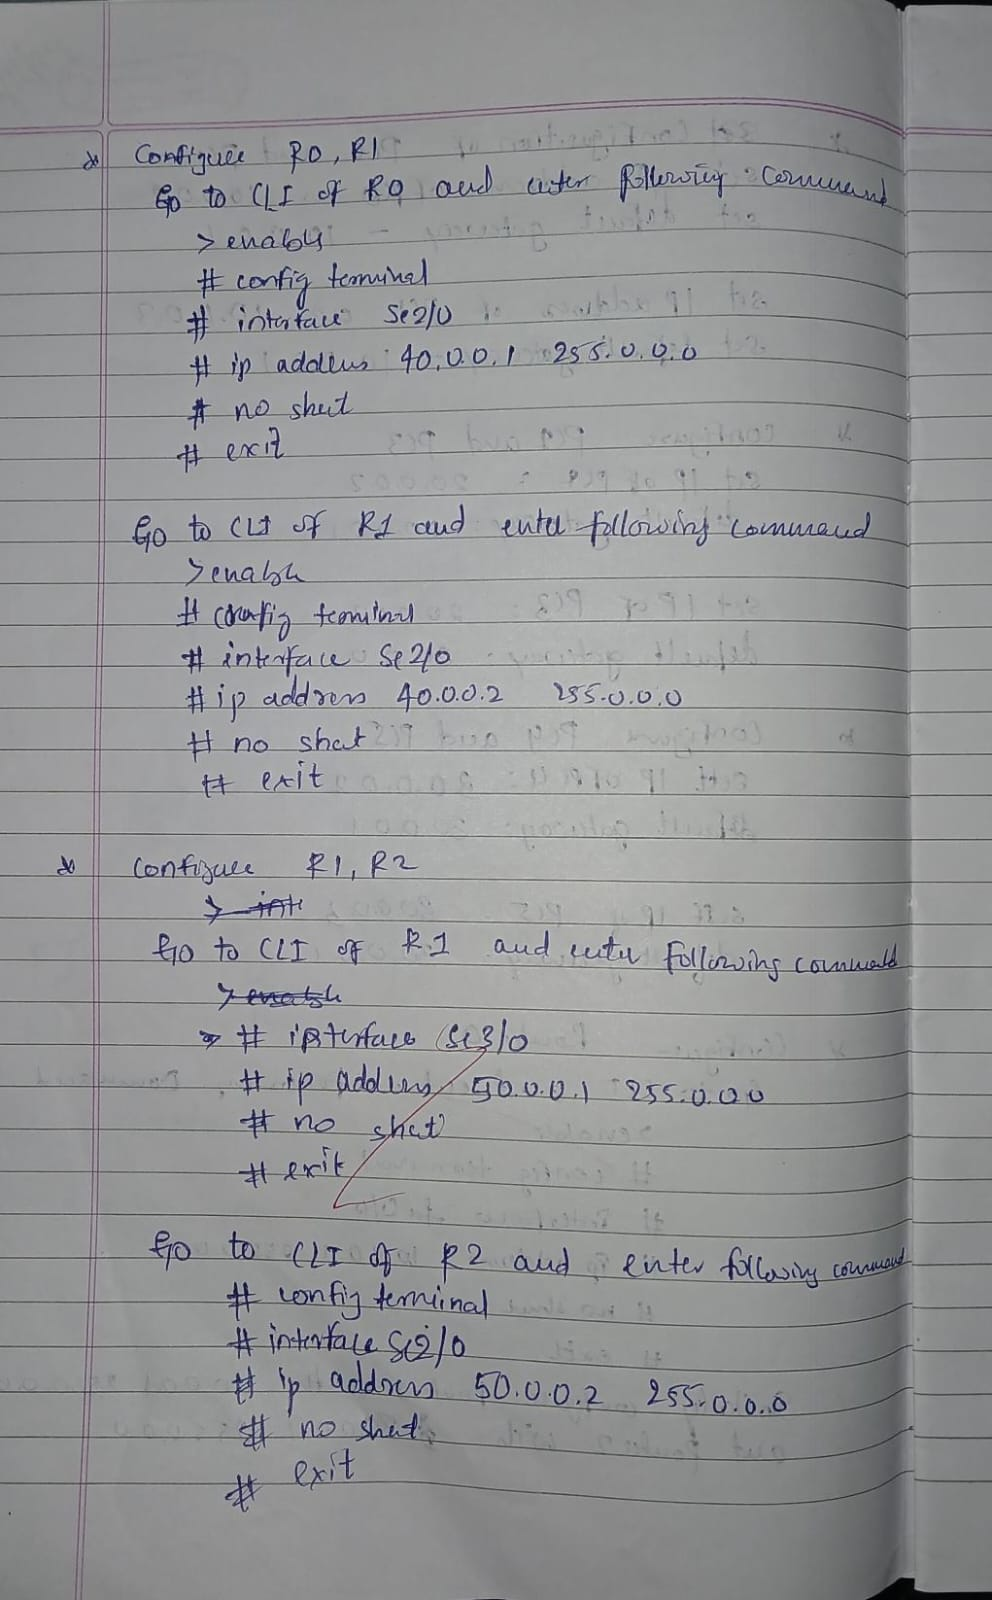 Configure R0, R1
Go to CLI of R0 and enter following command
> enable
# config terminal
# interface Se2/0
# ip address 40.0.0.1 255.0.0.0
# no shut
# exit
Go to CLI of R1 and enter following command
> enable
# config terminal
# interface Se2/0
# ip address 40.0.0.2 255.0.0.0
# no shut
# exit
Configure R1, R2
Go to CLI of R1 and enter following command
# interface Se3/0
# ip address 50.0.0.1 255.0.0.0
# no shut
# exit
Go to CLI of R2 and enter following command
# config terminal
# interface Se2/0
# ip address 50.0.0.2 255.0.0.0
# no shut
# exit